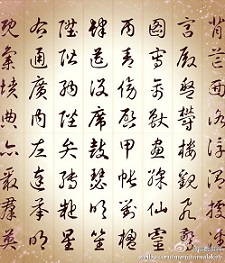 背芒面洛浮渭據涇
宮殿盤鬱樓觀飛驚
圖寫禽獸畫綵仙靈
丙舍傍啓甲帳對楹
肆筵設席鼓瑟吹笙
陞階納陛弁轉疑星
右通廣內左達承明
既集墳典亦聚羣英